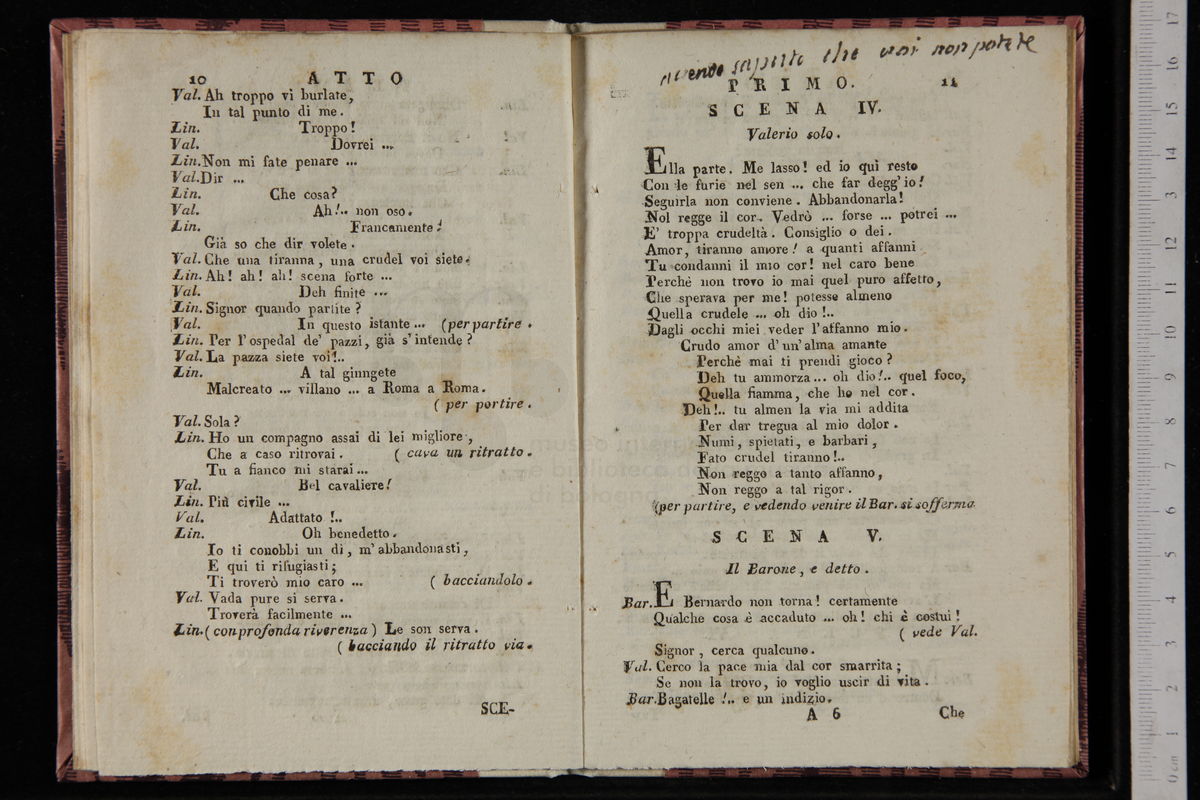 10 ATTO
Val. Ah troppo vi burlate,
In tal punto di me.
Lin. Troppo!
Val. Dovrei ...
Lin. Non mi fate penare ...
Val. Dir ...
Lin. Che cosa?
Val. Ah!.. non oso.
Lin. Francamente!
Già so che dir volete.
Val. Che una tiranna, una crudel voi siete.
Lin. Ah! ah! ah! scena forte ...
Val. Deh finite ...
Lin. Signor quando partite?
Val. In questo istante ... (per partire.
Lin. Per l'ospedal de' pazzi, già s'intende?
Val. La pazza siete voi!..
Lin. A tal giungete
Malcreato ... villano ... a Roma a Roma.
( per portire.
Val. Sola?
Lin. Ho un compagno assai di lei migliore,
Che a caso ritrovai. ( cava un ritratto.
Tu a fianco mi starai ...
Val. Bel cavaliere!
Lin. Più civile ...
Val. Adattato!..
Lin. Oh benedetto.
Io ti conobbi un dì, m'abbandonasti,
E qui ti rifugiasti;
Ti troverò mio caro ... ( bacciandolo.
Val. Vada pure si serva.
Troverà facilmente ...
Lin. ( con profonda riverenza ) Le son serva.
( bacciando il ritratto via.
SCE-
avendo saputo che voi non potete
PRIMO. 11
SCENA IV.
Valerio solo.
Ella parte. Me lasso! ed io quì resto
Con le furie nel sen ... che far degg'io!
Seguirla non conviene. Abbandonarla!
Nol regge il cor. Vedrò ... forse ... potrei ...
E' troppa crudeltà. Consiglio o dei.
Amor, tiranno amore! a quanti affanni
Tu condanni il mio cor! nel caro bene
Perchè non trovo io mai quel puro affetto,
Che sperava per me! potesse almeno
Quella crudele ... oh dio!..
Dagli occhi miei veder l'affanno mio.
Crudo amor d'un'alma amante
Perchè mai ti prendi gioco?
Deh tu ammorza ... oh dio!.. quel foco,
Quella fiamma, che ho nel cor.
Deh!.. tu almen la via mi addita
Per dar tregua al mio dolor.
Numi, spietati, e barbari,
Fato crudel tiranno!..
Non reggo a tanto affanno,
Non reggo a tal rigor.
(per partire, e vedendo venire il Bar. si sofferma
SCENA V.
Il Barone, e detto.
Bar. E Bernardo non torna! certamente
Qualche cosa è accaduto ... oh! chi è costui!
( vede Val.
Signor, cerca qualcuno.
Val. Cerco la pace mia dal cor smarrita;
Se non la trovo, io voglio uscir di vita.
Bar. Bagatelle!.. e un indizio.
A 6 Che